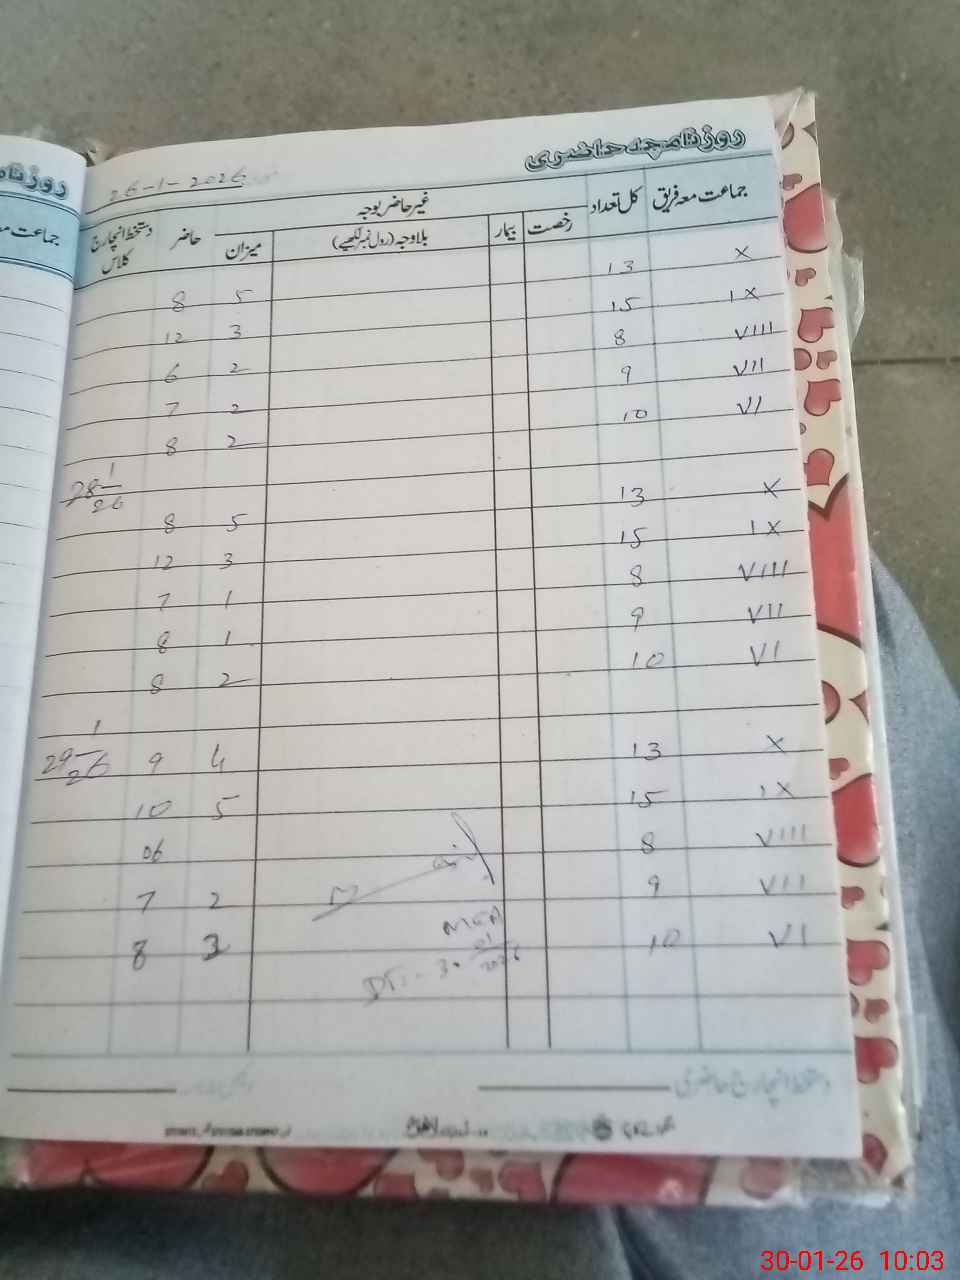 روزنامچہ حاضری
26-1-2026
جماعت معہ فریق کل تعداد غیر حاضر بوجہ حاضر دستخط انچارج کلاس
رخصت بیمار بلاوجہ (رول نمبر لکھیے) میزان
X 13 5 8
IX 15 3 12
VIII 8 2 6
VII 9 2 7
VI 10 2 8
28 1/26
X 13 5 8
IX 15 3 12
VIII 8 1 7
VII 9 1 8
VI 10 2 8
29 1/26
X 13 4 9
IX 15 5 10
VIII 8 06
VII 9 2 7
VI 10 3 8
MEA
DT:- 3. 01 2026
دستخط انچارج حاضری
روزنا
جماعت مع
30-01-26 10:03